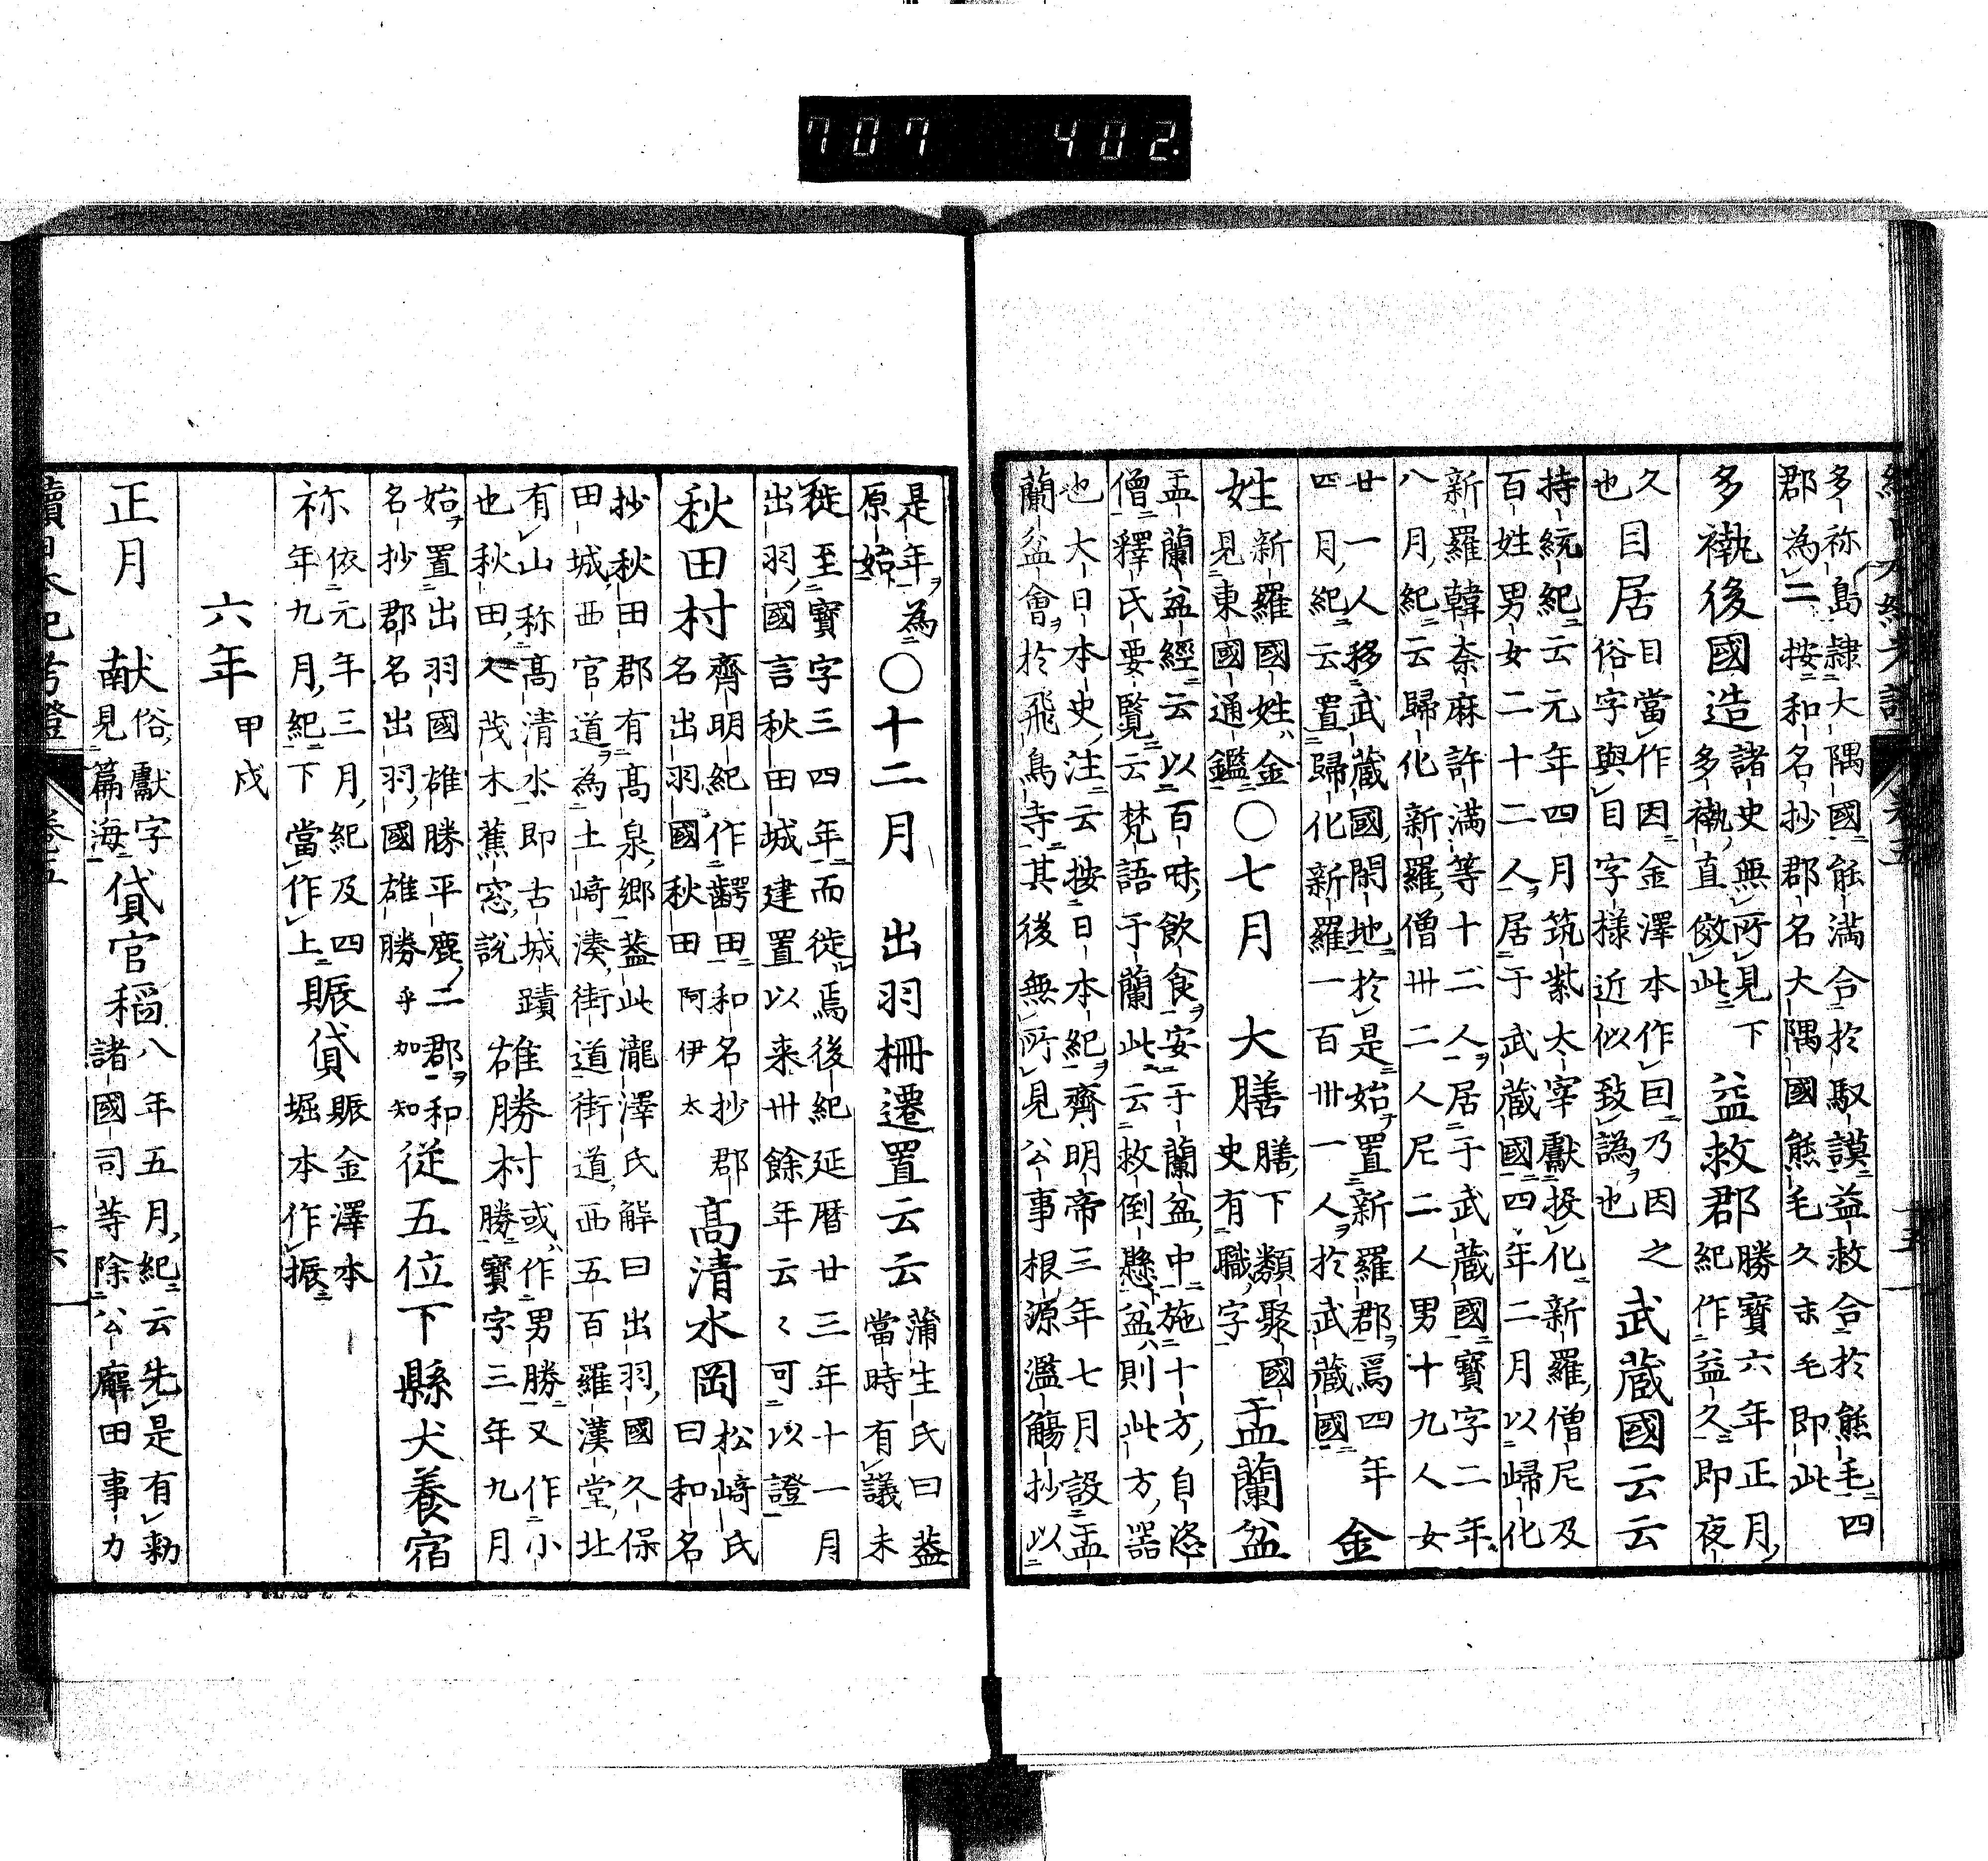 707 402.
多祢島隷大隅國能満合於馭謨益救合於熊毛四
郡為二按和名抄郡名大隅國熊毛久末毛即此
多褹後國造諸史無所見下
多褹直倣此
益救郡勝寶六年正月
紀作益久即夜
久
也
目居目當作因金澤本作囙乃因之
俗字與目字様近似致譌也
武蔵國云云
持統紀云元年四月筑紫太宰獻投化新羅僧尼及
百姓男女二十二人居于武藏國四年二月以歸化
新羅韓奈麻許満等十二人居于武蔵國寶字二年
八月紀云歸化新羅僧卅二人尼二人男十九人女
廿一人移武蔵國閑地於是始置新羅郡焉四年
四月紀云置歸化新羅一百卅一人於武蔵國
金
姓新羅國姓金
見東國通鑑
〇七月 大膳膳下類聚國
史有職字
盂蘭盆
盂蘭盆經云以百味飲食安于蘭盆中施十方自恣
僧釋氏要覧云梵語于蘭此云救倒懸盆則此方器
也大日本史注云按日本紀齊明帝三年七月設盂
蘭盆會於飛鳥寺其後無所見公事根源濫觴抄以
是年為
原始
〇十二月 出羽柵遷置云云蒲生氏曰蓋
當時有議未
徙至寶字三四年而徙焉後紀延暦廿三年十一月
出羽國言秋田城建置以来卌餘年云々可以證
秋田村齊明紀作齶田和名抄郡
名出羽國秋田阿伊太
高清水岡松﨑氏
曰和名
抄秋田郡有高泉郷蓋此瀧澤氏解曰出羽國久保
田城西官道為土﨑湊街道街道西五百羅漢堂北
有山称高清水即古城蹟
也秋田人茂木蕉窓説
雄勝村或作男勝又作小
勝寶字三年九月
始置出羽國雄勝平鹿二郡和
名抄郡名出羽國雄勝乎加知
従五位下縣犬養宿
祢依元年三月紀及四
年九月紀下當作上
賑貸賑金澤本
堀本作振
六年甲戌
正月 献俗獻字
見篇海
貸官稲八年五月紀云先是有勅
諸國司等除公廨田事力
續日本紀考證 卷五